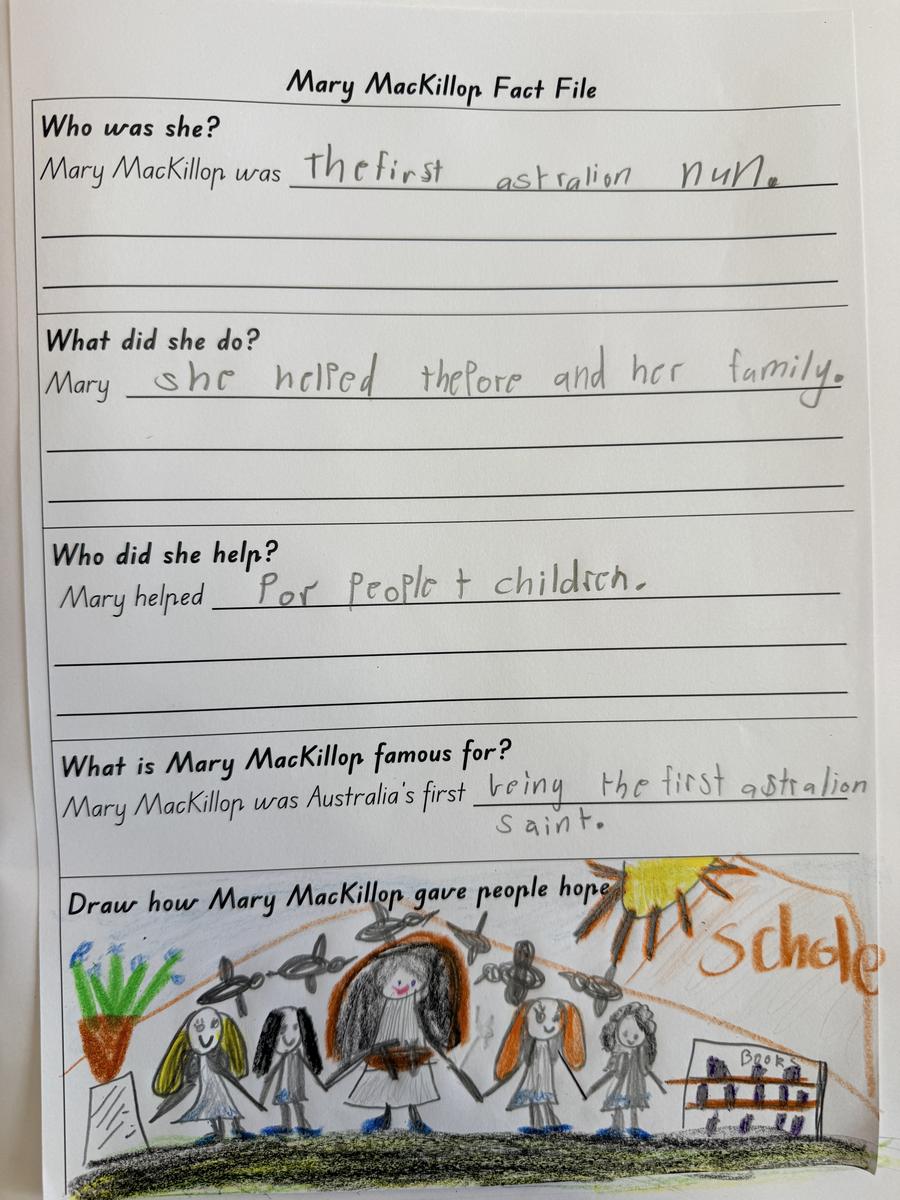 Mary MacKillop Fact File
Who was she?
Mary MacKillop was thefirst astralion nun.
What did she do?
Mary she helped thepore and her family.
Who did she help?
Mary helped Por people + children.
What is Mary MacKillop famous for?
Mary MacKillop was Australia's first being the first astralion
saint.
Draw how Mary MacKillop gave people hope
Schole
BOOKS